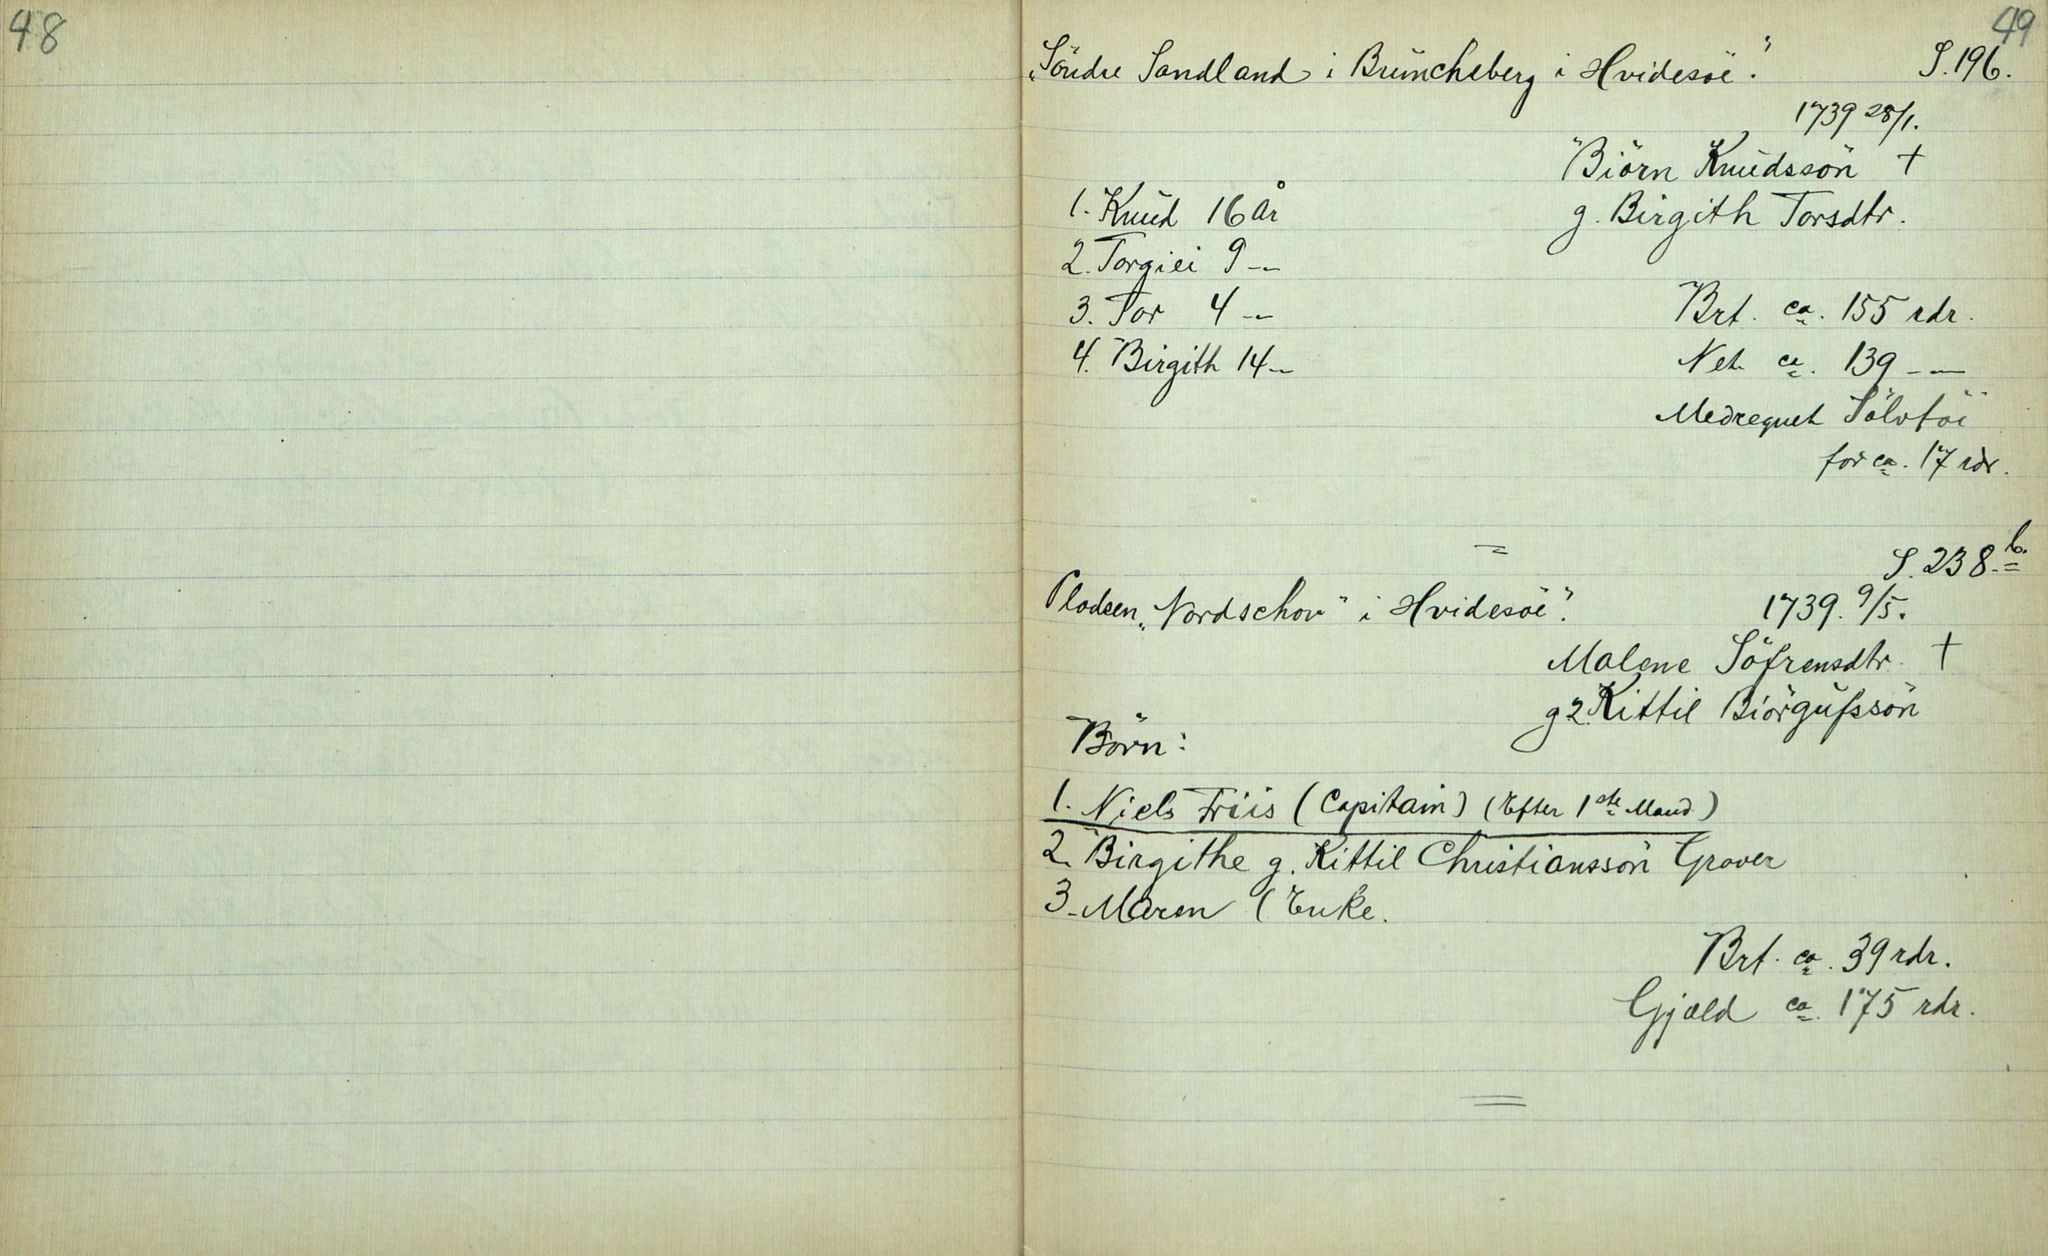 48
49
"Söndre Sandland i Brüncheberg i Hvidesöe". S. 196.
1739 28/1.
Biörn Knüdssön †
1. Knüd 16 år g. Birgith Torsdtr.
2. Torgiei 9 -"-
3. Tor 4 -"- Brt. ca. 155 rdr.
4. Birgith 14 -"- Net. ca. 139 -"-
Medregnet Sölvtöi
for ca. 17 rdr.
S. 238.b.
Pladsen "Nordschov" i Hvidesöe". 1739. 9/5.
Malene Söfrensdtr. †
g 2. Kittil Biörgüfssön
Börn:
1. Niels Friis (Capitain) (Efter 1ste Mand)
2. Birgithe g. Kittil Christianssön Graver
3. Maren (Enke.
Brt. ca. 39 rdr.
Gjæld ca. 175 rdr.